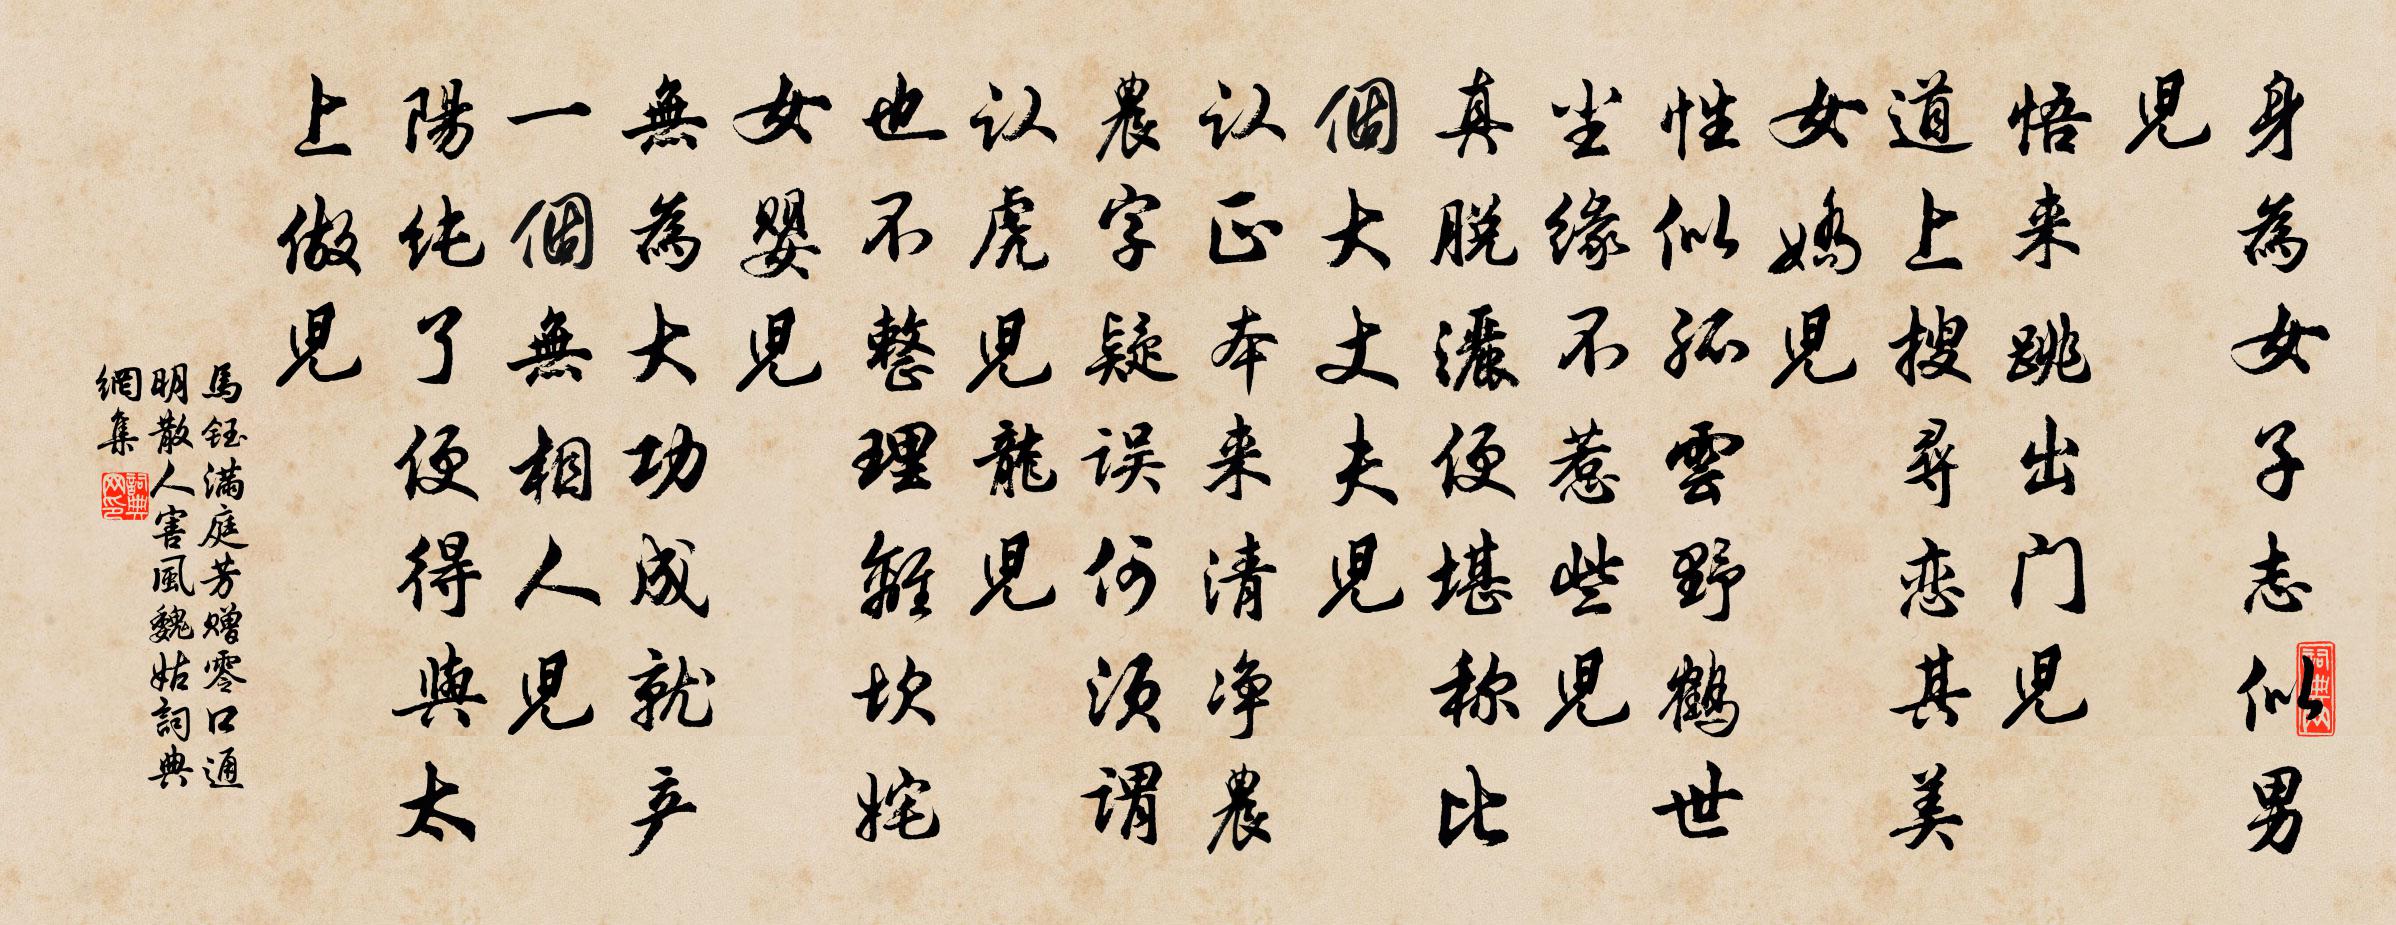 身為女子志似男
児
悟来跳出门児
道上搜尋恋其美
女嬌児
性似孤雲野鶴世
坐缘不惹些児
真脱灑便堪称比
個大丈夫児
认正本来清净農
農字疑误何须谓
认虎児龍児
也不整理離坎姹
女嬰児
無為大功成就产
一個無相人児
陽纯了便得與太
上做児
馬钰满庭芳赠零口通
明散人害風魏姑詞典
網集
詞典网
詞典网印